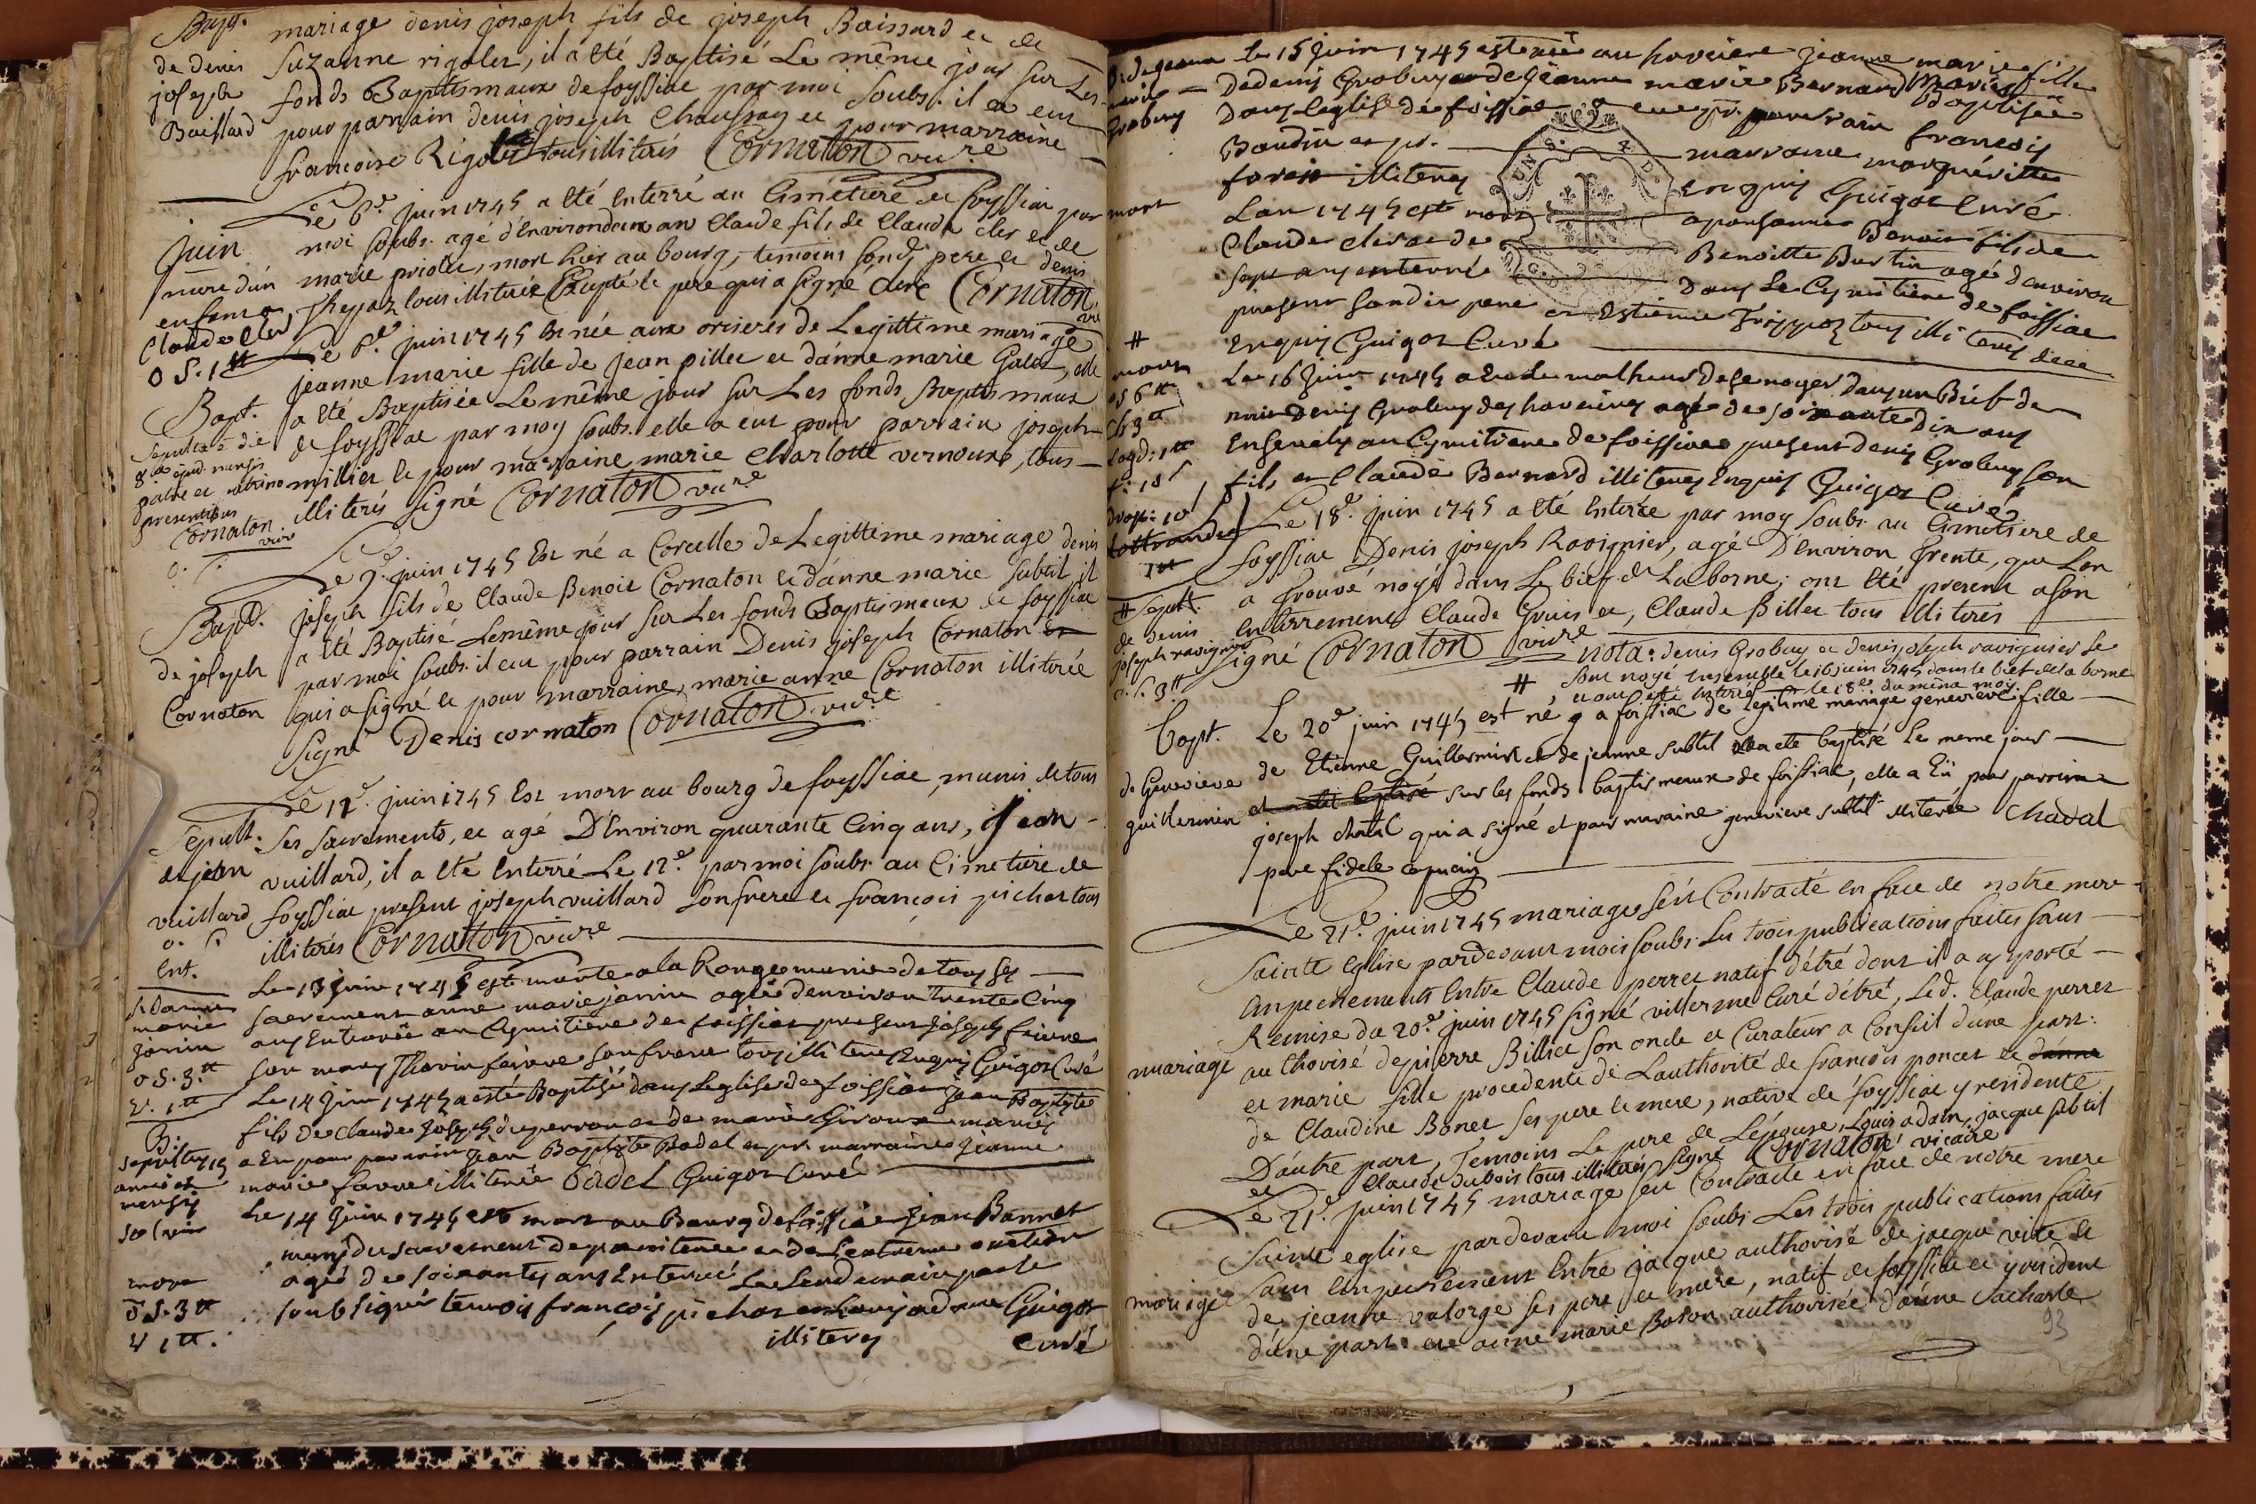 Bapt. mariage denis joseph fils de joseph Boissard et de
de denis Suzanne rigolet, il a été Baptisé Le même jour sur Les
joseph fonds Baptismaux de foyssiac par moi soubs. il a eut
Boissard pour parrain denis joseph Chaussay et pour marraine
francoise Rigolet tous illiterés Cornaton vicre
Le 6e juin 1745 a été Enterré au Cimetiere de foyssiac par
Juin moi soubs. agé d'Environ deux an Claude fils de Claude cler et de
mort d'un marie priolet, mort hier au bourg, temoins sond. pere et denis
enfant a
Claude Cler, tous illiterés Excepté le pere qui a signé clerc Cornaton
vic
0 S. 1tt Le 6e juin 1745 Est née aux orcieres de Legittime mariage
jeanne marie fille de jean pillet et d'anne marie Galet, elle
Bapt. a été Baptisée Le même jour sur Les fonds Baptismaux
Sepulta e die de foyssiac par moy soubs. elle a eut pour parrain joseph
8a ejusd. mensis
patre et patrino millier et pour marraine marie Charlotte vernoux, tous
presentibus illiterés signé Cornaton vicre
Cornaton
vicr
Le 9e juin 1745 Est né a Corcelle de Legittime mariage denis
joseph fils de Claude Benoit Cornaton et d'anne marie subtil il
Bapt. a été Baptisé Le même jour sur Les fonds Baptismaux de foyssiac
de joseph par moi soubs. il eu pour parrain Denis joseph Cornaton
Cornaton qui a signé et pour marraine, marie anne Cornaton illiterée
signé Denis cornaton Cornaton vicre
Le 12e juin 1745 Est mort au bourg de foyssiac, munis de tous
Sepult. ses sacrements, et agé D'Environ quarante Cinq ans, jean
de jean vuillard, il a été Enterré Le 12e par moi soubs. au Cimetiere de
vuillard foyssiac present joseph vuillard son frere et francois pichot tous
illiterés Cornaton vicre
Ent. Le 13 Juin 1745 est morte a la Rouge munie de tous ses
d'anne sacrement anne marie janin agée denviron trente Cinq
marie ans Enterrée au Cymitiere de foissiac present joseph favre
janin son mary Thorin favre son frere tous illiterés Enquis Guigot Curé
0 S. 3tt
V. 1tt Le 14 Juin 1745 a esté Baptisé dans Leglise de foissiac Jean Baptiste
B. fils de Claude Joseph duperron et de marie Giroux mariés
sepultus 19 a Eu pour parrain Jean Baptiste Badel et pr. marraine jeanne
mensis marie favre illiterée Badel Guigot Curé
Le 14 Juin 1745 est mort au Bourg de foissiac Jean Bonnet
muny du sacrement de penitence et de Lextreme onction
mort agé de soixantes ans Enterré Le Lendemain par le
0 S. 3tt soub signé temoin francois pichot et Louis adam Guigot
V 1tt. illiterés Curé
B. de jeanne le 15 juin 1745 est née au haveriere jeanne marie fille
marie De denis Grobuy et de jeanne marie Bernard Mariés
Grobuy Dans Leglise de foissiac Baptisée
eu pr. parrain francois
Baudin et pr. marraine marguéritte
favre illiterés Enquis Guigot Curé
mort Lan 1745 est mort Benoit fils de
Claude cler et de Benoitte Burtin agé denviron
sept ans enterré Dans Le Cymitiere de foissiac
present son dit pere et Estienne tous illiterés dice
Enquis Guigot Curé
# Le 16 Juin 1745 a Eu le malheur de se noyer dans un Bief de
mort
0 S 6tt denis Grobuy des haverieres agé de soixante dix ans
Ensevely au Cymitiere de foissiac present denis Grobuy son
fils et Claude Bernard illiterés Enquis Guigot Curé
Le 18e juin 1745 a été Enterée par moy soubs. au Cimetiere de
foyssiac Denis joseph Ravignier, agé D'Environ trente, que Lon
# Sepult. a trouvé noyé dans Le bief de La borne; ont été present a son
de denis Enterrement Claude Gruis et, Claude Billet tous illiterés
joseph ravignier signé Cornaton vicre
0. S. 3tt
# nota: denis Grobuy et denis joseph ravignier se
sont noyé Ensemble le 16 juin 1745 dans le bief de la borne
le 18e du même moy.
Bapt. Le 20e juin 1745 est né a foissiac de legitime mariage genevieve fille
de Genevieve de Etienne Guillermin et de jeanne subtil a eté baptisé le meme jour
guillermin et a eté baptisé sur les fonds baptismaux de foissiac, elle a Eü pour parrain
joseph chadal qui a signé et pour maraine genevieve subtil illiterée Chadal
pere fidele capucin
Le 21e juin 1745 mariage s'est Contracté en face de notre mere
Sainte Eglise pardevant moi soubs. Les trois publications faites sans
Empechements Entre Claude perret natif d'étré dont il a apporté
Remise du 20e juin 1745 signé villerme Curé d'étré, Led. Claude perret
mariage authorisé de pierre Billiet son oncle et Curateur a Conseil d'une part:
et marie fille procedente de L'authorité de francois poncet et d'anne
de Claudine Bonet ses pere et mere, native de foyssiac y residente
D'autre part, Temoins Le pere de L'épouse, Louis adam, jacque subtil
et Claude Dubois tous illiterés signé Cornaton vicaire
Le 21e juin 1745 mariage s'est Contracté en face de notre mere
Sainte eglise pardevant moi soubs. Les trois publications faites
mariage sans Empechement Entre jacque authorisé de jacque vite et
de jeanne valorge ses pere et mere, natif de foyssiac et y resident
d'une part. et anne marie Boson authorisée d'anne Lacharle
93